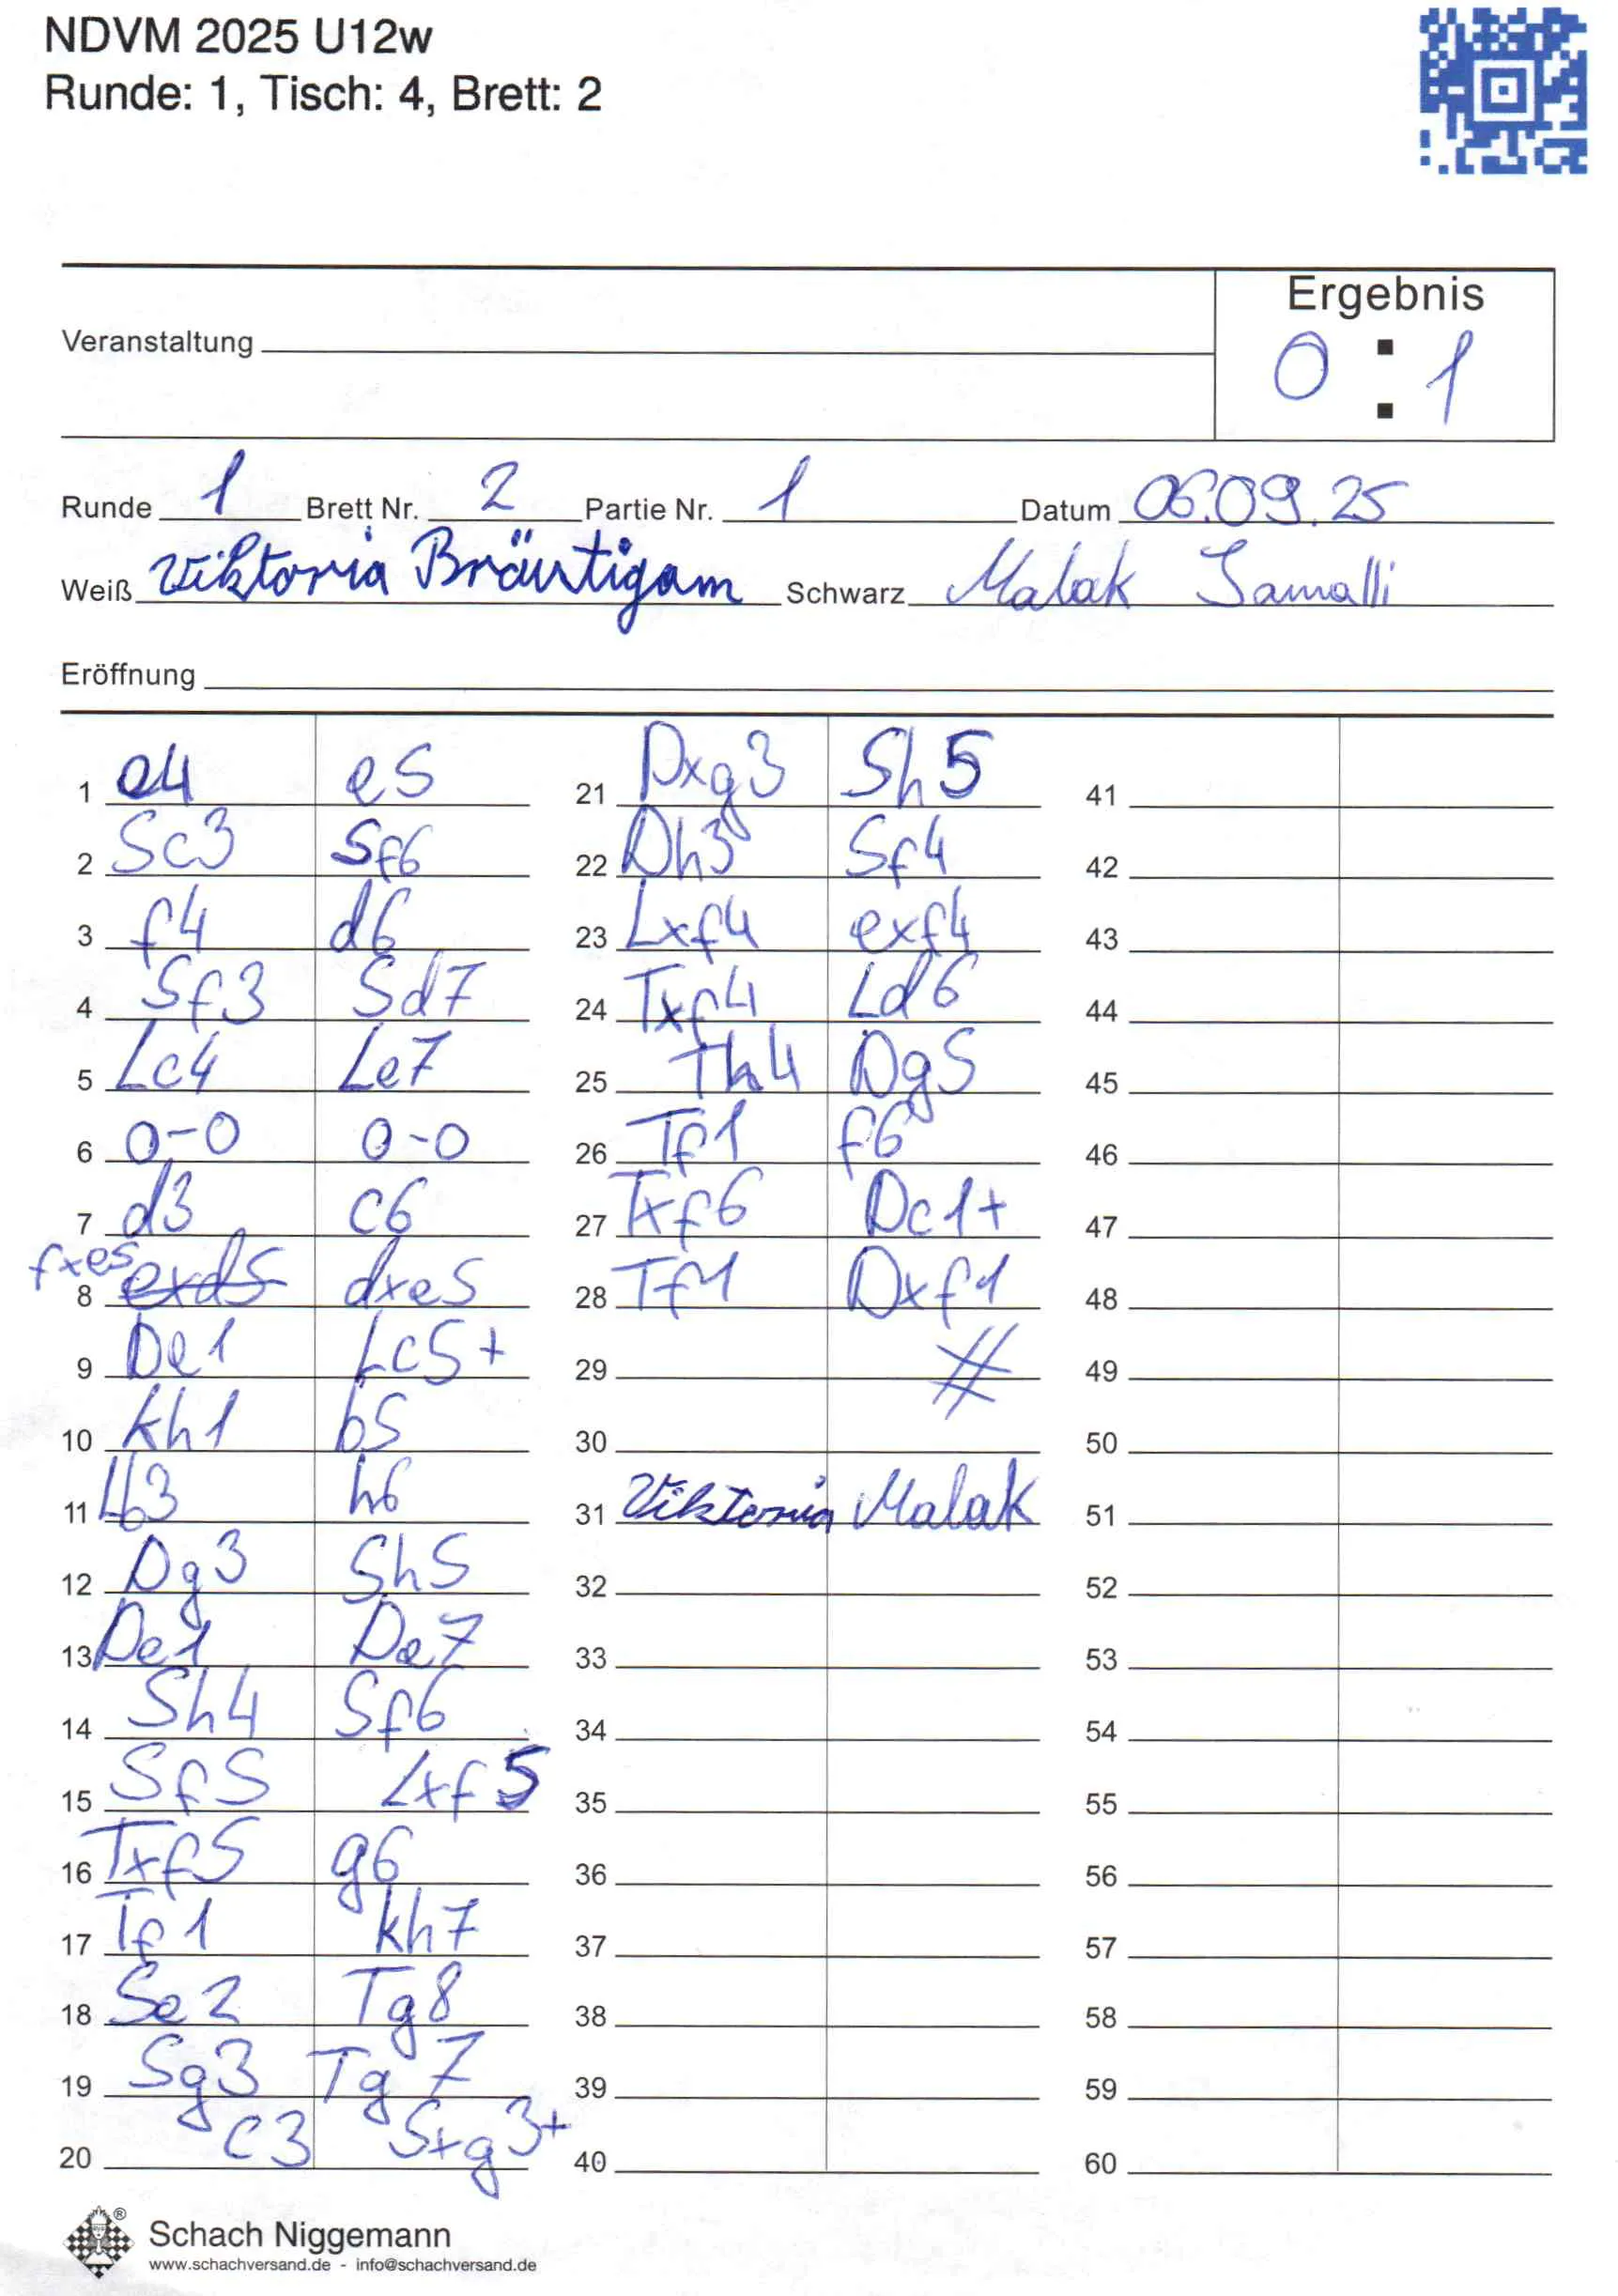 NDVM 2025 U12w
Runde: 1, Tisch: 4, Brett: 2
Ergebnis
Veranstaltung
0 : 1
Runde 1 Brett Nr. 2 Partie Nr. 1 Datum 06.09.25
Weiß Viktoria Bräutigam Schwarz Malak Samalli
Eröffnung
1 e4 e5
2 Sc3 Sf6
3 f4 d6
4 Sf3 Sd7
5 Lc4 Le7
6 0-0 0-0
7 d3 c6
8 fxe5 exd5 dxe5
9 De1 Lc5+
10 Kh1 b5
11 Lb3 h6
12 Dg3 Sh5
13 De1 De7
14 Sh4 Sf6
15 Sf5 Lxf5
16 Txf5 g6
17 Tf1 Kh7
18 Se2 Tg8
19 Sg3 Tg7
20 c3 Sxg3+
21 Dxg3 Sh5
22 Dh3 Sf4
23 Lxf4 exf4
24 Txf4 Ld6
25 Th4 Dg5
26 Tf1 f6
27 Txf6 Dc1+
28 Tf1 Dxf1
29 #
30
31 Viktoria Malak
32
33
34
35
36
37
38
39
40
41
42
43
44
45
46
47
48
49
50
51
52
53
54
55
56
57
58
59
60
®
Schach Niggemann
www.schachversand.de - info@schachversand.de